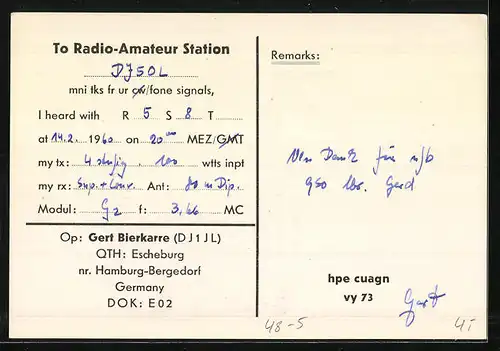 To Radio-Amateur Station
DJ5OL
mni tks fr ur cw/fone signals,
I heard with R 5 S 8 T
at 14.2. 1960 on 20⁰⁰ MEZ/GMT
my tx: 4 stufig . 100 wtts inpt
my rx: Sup. + Conv. Ant: 80 m Dip.
Modul: G2 f: 3,66 MC
Op: Gert Bierkarre (DJ1JL)
QTH: Escheburg
nr. Hamburg-Bergedorf
Germany
DOK: E02
Remarks:
Vln Dank für
QSO lbr. Gerd
hpe cuagn
vy 73
Gert
48-5